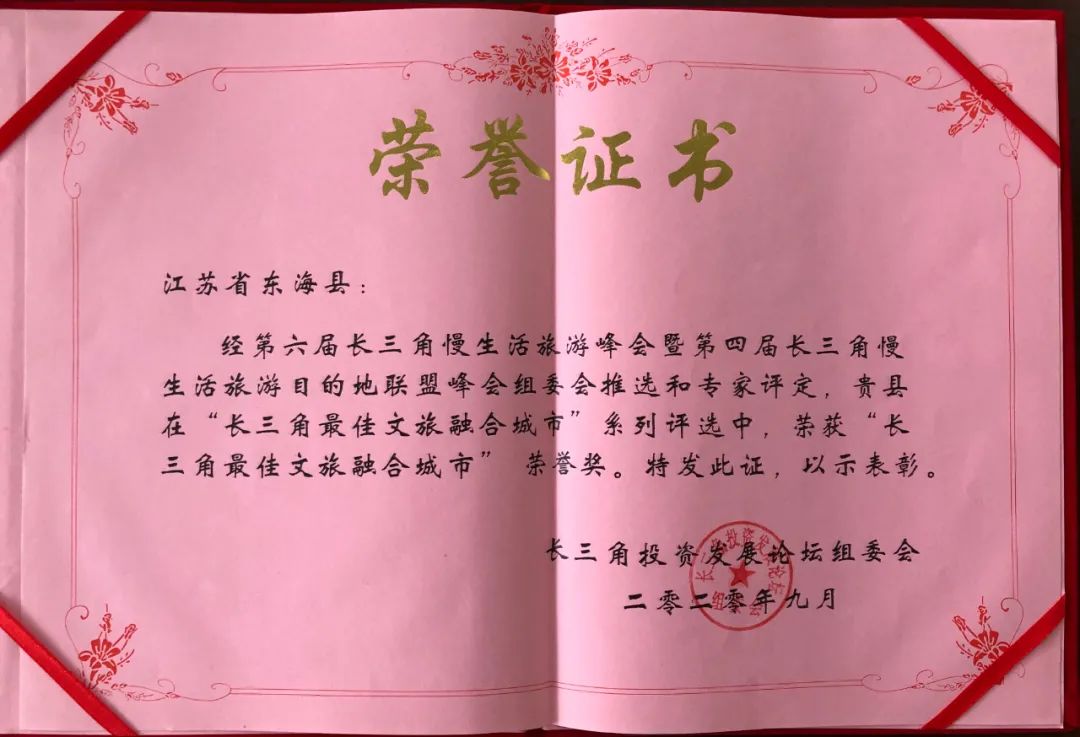 荣誉证书
江苏省东海县：
经第六届长三角慢生活旅游峰会暨第四届长三角慢
生活旅游目的地联盟峰会组委会推选和专家评定，贵县
在“长三角最佳文旅融合城市”系列评选中，荣获“长
三角最佳文旅融合城市”荣誉奖。特发此证，以示表彰。
长三角投资发展论坛组委会
二零二零年九月
长三角投资发展论坛
组委会